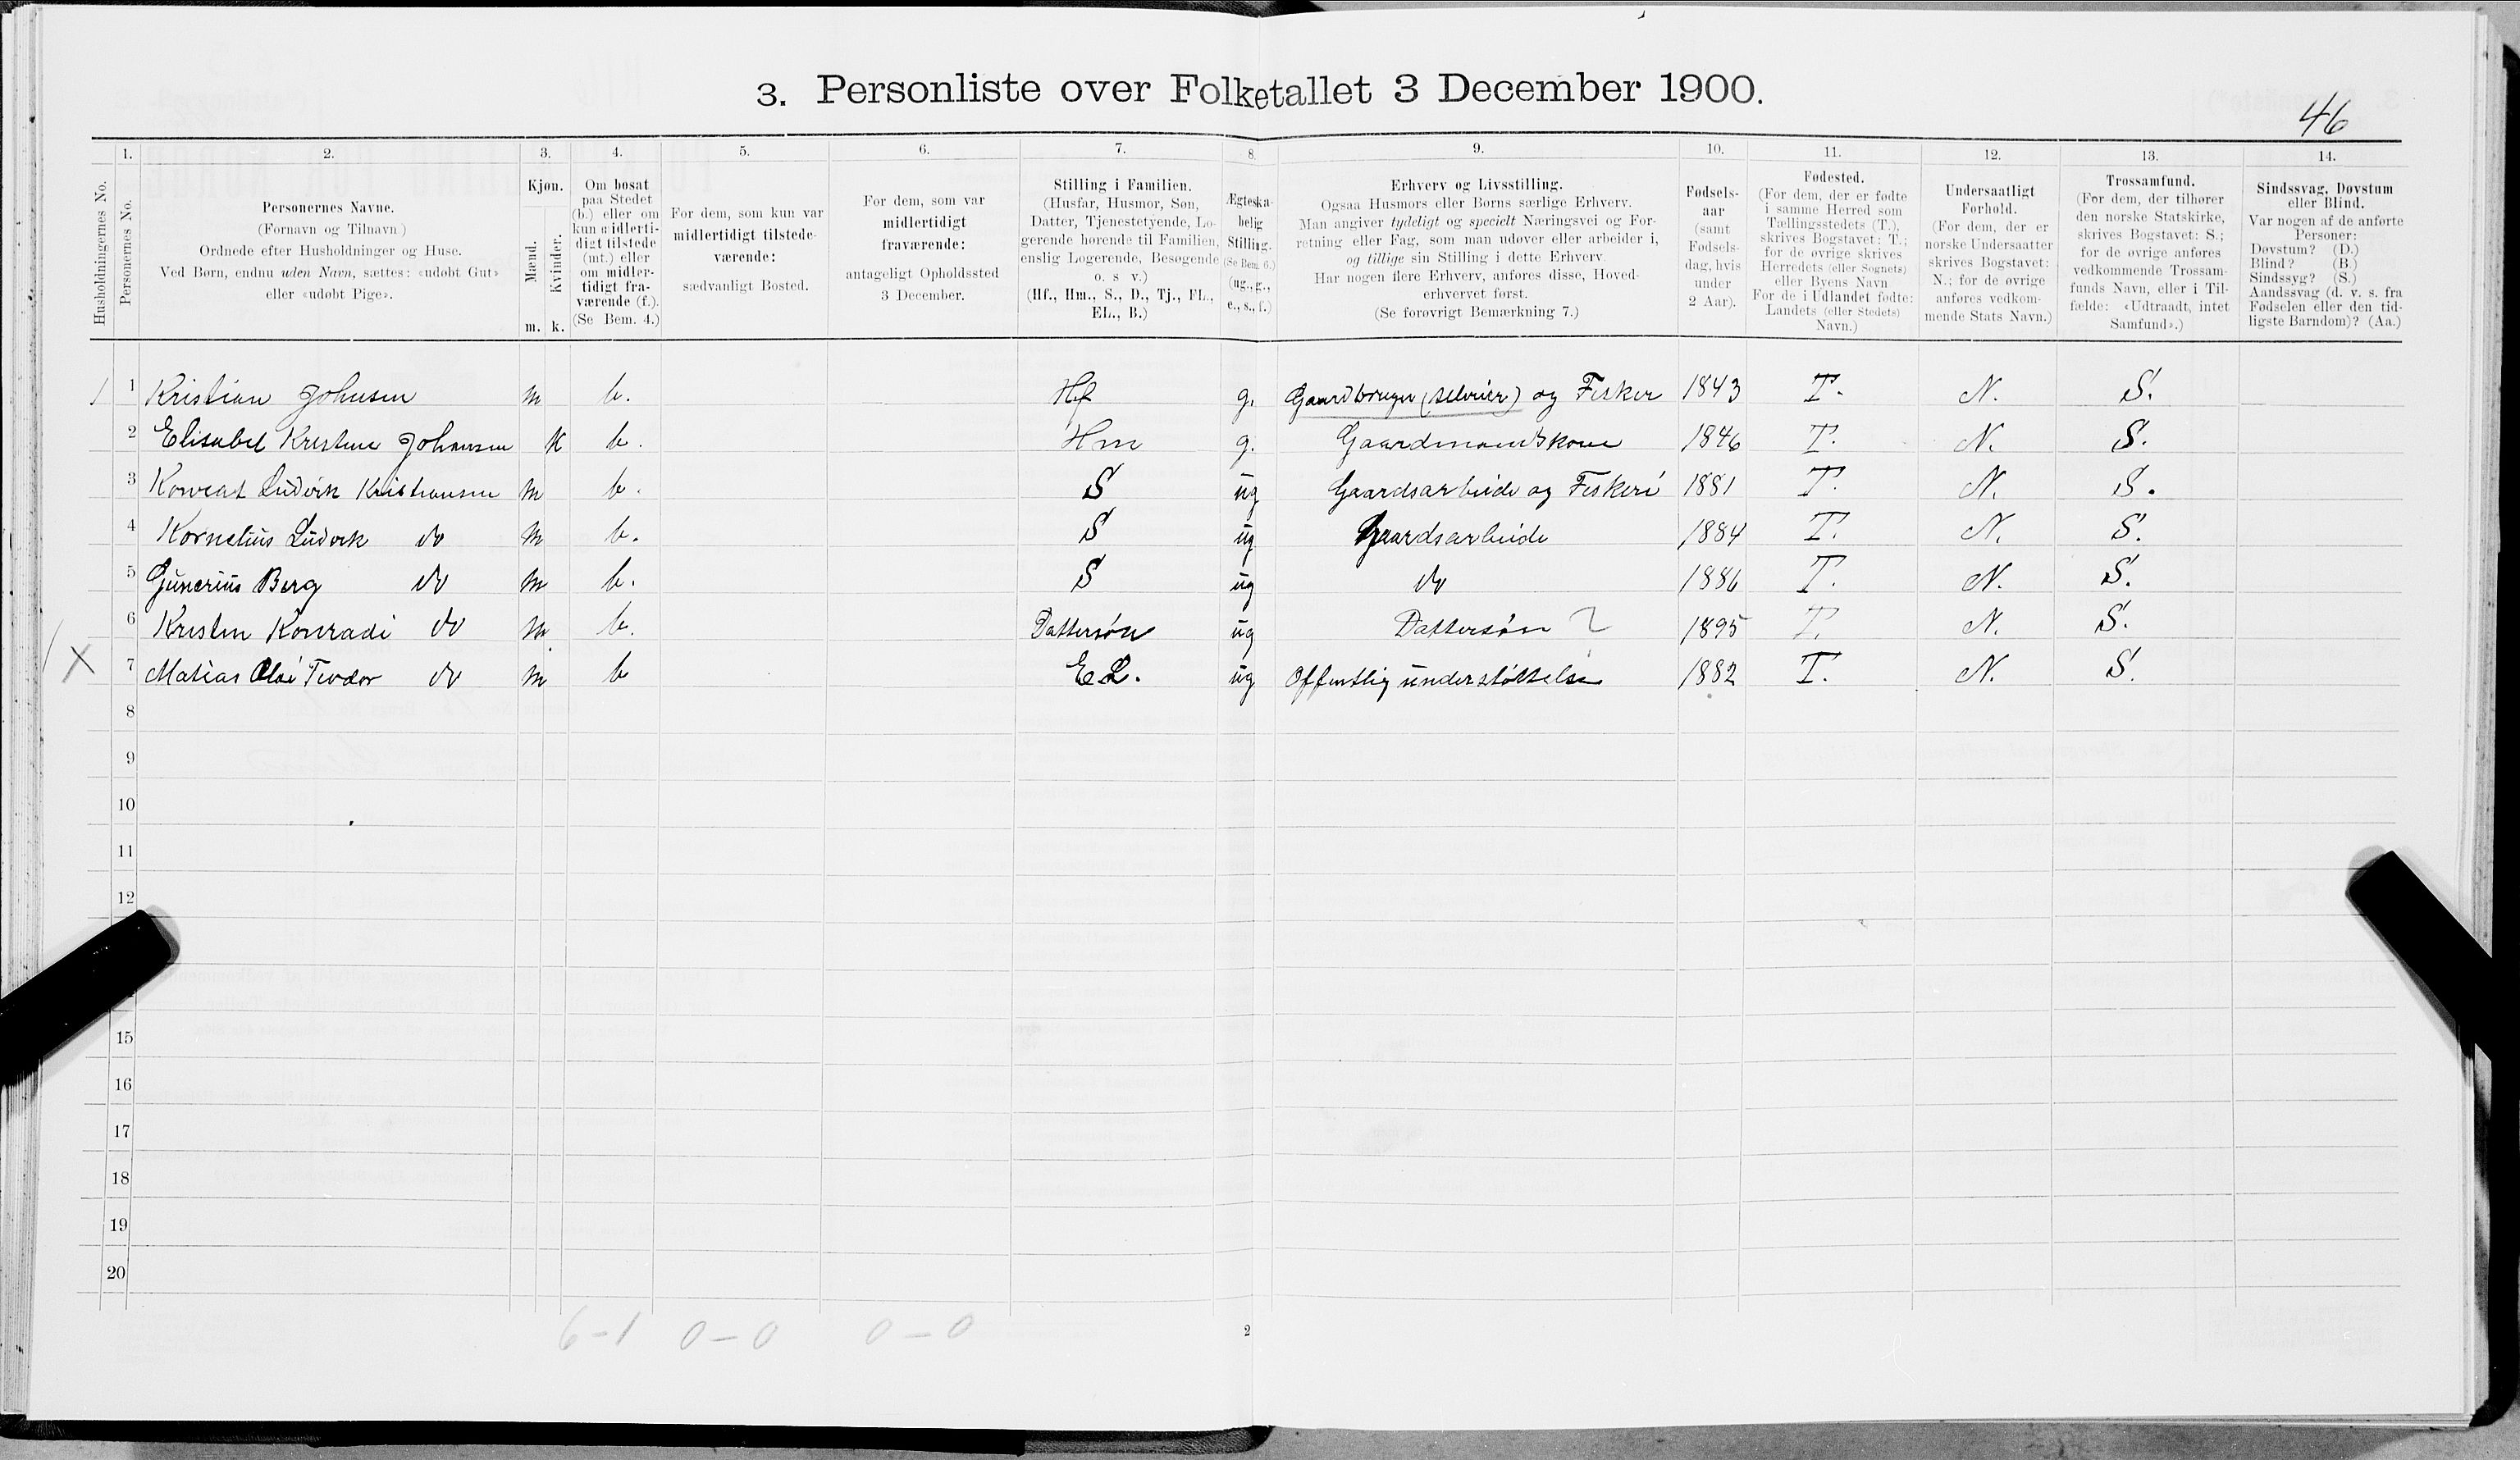 3. Personliste over Folketallet 3 December 1900.
46
1. 2. 3. 4. 5. 6. 7. 8. 9. 10. 11. 12. 13. 14.
Husholdningernes No.
Personernes No.
Personernes Navne.
(Fornavn og Tilnavn.)
Ordnede efter Husholdninger og Huse.
Ved Børn, endnu uden Navn, sættes: «udøbt Gut»
eller «udøbt Pige».
Kjøn.
Mænd.
Kvinder.
m. k.
Om bosat
paa Stedet
(b.) eller om
kun midlerti-
digt tilstede
(mt.) eller
om midler-
tidigt fra-
værende (f.).
(Se Bem. 4.)
For dem, som kun var
midlertidigt tilstede-
værende:
sædvanligt Bosted.
For dem, som var
midlertidigt
fraværende:
antageligt Opholdssted
3 December.
Stilling i Familien.
(Husfar, Husmor, Søn,
Datter, Tjenestetyende, Lo-
gerende hørende til Familien,
enslig Logerende, Besøgende
o. s. v.)
(Hf., Hm., S., D., Tj., FL.,
EL., B.)
Ægteska-
belig
Stilling.
(Se Bem. 6.)
(ug., g.,
e., s., f.)
Erhverv og Livsstilling.
Ogsaa Husmors eller Børns særlige Erhverv.
Man angiver tydeligt og specielt Næringsvei og For-
retning eller Fag, som man udøver eller arbeider i,
og tillige sin Stilling i dette Erhverv.
Har nogen flere Erhverv, anføres disse, Hoved-
erhvervet først.
(Se forøvrigt Bemærkning 7.)
Fødsels-
aar
(samt
Fødsels-
dag, hvis
under
2 Aar).
Fødested.
(For dem, der er fødte
i samme Herred som
Tællingsstedets (T.),
skrives Bogstavet: T.;
for de øvrige skrives
Herredets (eller Sognets)
eller Byens Navn
For de i Udlandet fødte:
Landets (eller Stedets)
Navn.)
Undersaatligt
Forhold.
(For dem, der er
norske Undersaatter
skrives Bogstavet:
N.; for de øvrige
anføres vedkom-
mende Stats Navn.)
Trossamfund.
(For dem, der tilhører
den norske Statskirke,
skrives Bogstavet: S.;
for de øvrige anføres
vedkommende Trossam-
funds Navn, eller i Til-
fælde: «Udtraadt, intet
Samfund».)
Sindssvag, Døvstum
eller Blind.
Var nogen af de anførte
Personer:
Døvstum? (D.)
Blind? (B.)
Sindssyg? (S.)
Aandssvag (d. v. s. fra
Fødselen eller den tid-
ligste Barndom)? (Aa.)
1 1 Kristian Johnsen m b. Hf g. Gaardbruger (selveier) og Fisker 1843 T. N. S.
2 Elisabet Kristine Johansen k b. Hm g. Gaardmandskone 1846 T. N. S.
3 Ludvik Kristiansen m b. S ug Gaardsarbeide og Fiskeri 1881 T. N. S.
4 Kornelius Ludvik do m b. S ug Gaardsarbeide 1884 T. N. S.
5 Gunerius Berg do m b. S ug do 1886 T. N. S.
6 Kristen Konradi do m b. Dattersøn ug Dattersøn 1895 T. N. S.
X 7 Matias Teodor do m b EL. ug Offentlig understøttelse 1882 T. N. S.
8
9
10
11
12
15
16
17
18
19
20
6-1 0-0 0-0
2